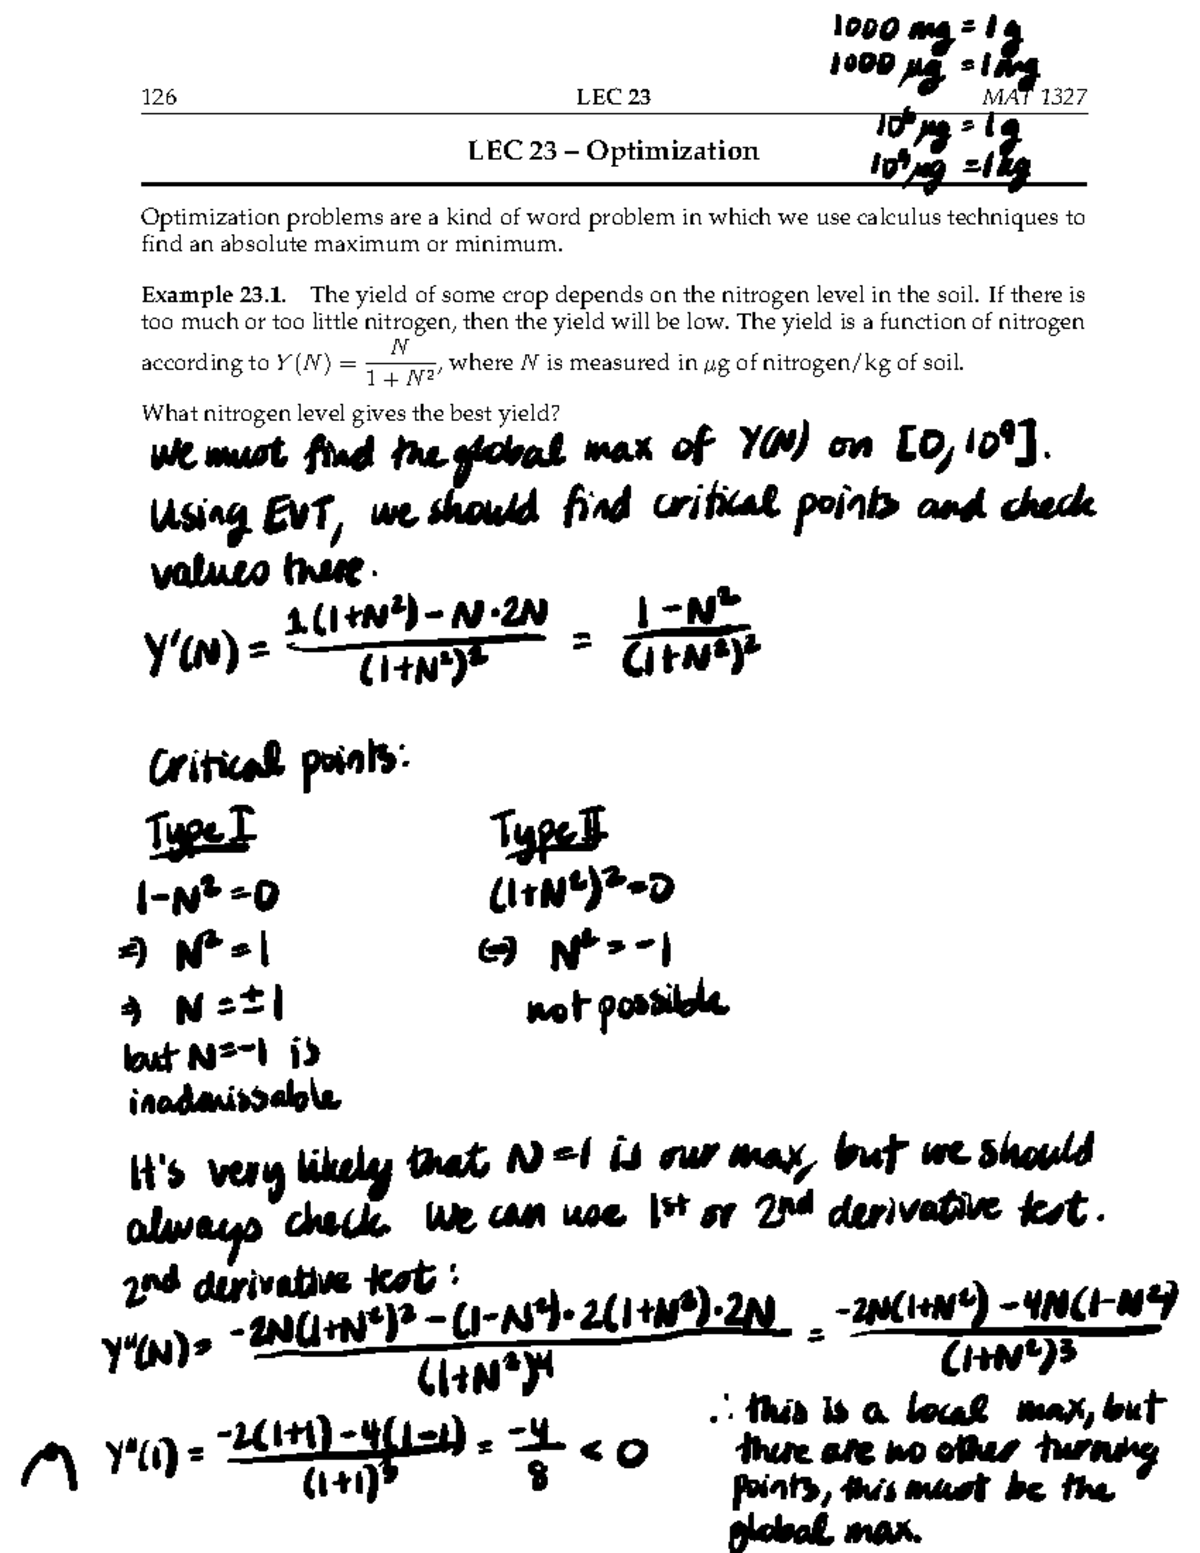 1000 mg = 1 g
1000 μg = 1 mg
126 LEC 23 MAT 1327
10⁶ μg = 1 g
LEC 23 – Optimization
10⁹ μg = 1 kg
Optimization problems are a kind of word problem in which we use calculus techniques to
find an absolute maximum or minimum.
Example 23.1. The yield of some crop depends on the nitrogen level in the soil. If there is
too much or too little nitrogen, then the yield will be low. The yield is a function of nitrogen
according to Y(N) = N/(1 + N²), where N is measured in μg of nitrogen/kg of soil.
What nitrogen level gives the best yield?
We must find the global max of Y(N) on [0, 10⁹].
Using EVT, we should find critical points and check
values there.
Y'(N) = (1(1+N²) - N·2N)/(1+N²)² = (1-N²)/(1+N²)²
Critical points:
Type I Type II
1-N² = 0 (1+N²)² = 0
⇒ N² = 1 ⇔ N² = -1
⇒ N = ±1 not possible
but N=-1 is
inadmissable
It's very likely that N=1 is our max, but we should
always check. We can use 1st or 2nd derivative test.
2nd derivative test:
Y"(N) = (-2N(1+N²)² - (1-N²)·2(1+N²)·2N)/(1+N²)⁴ = (-2N(1+N²) - 4N(1-N²))/(1+N²)³
Y"(1) = (-2(1+1) - 4(1-1))/(1+1)³ = -4/8 < 0
∴ this is a local max, but
there are no other turning
points, this must be the
global max.